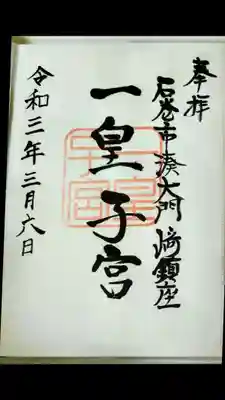 奉拝
石巻市湊大門﨑鎮座
一皇子宮
令和三年三月六日